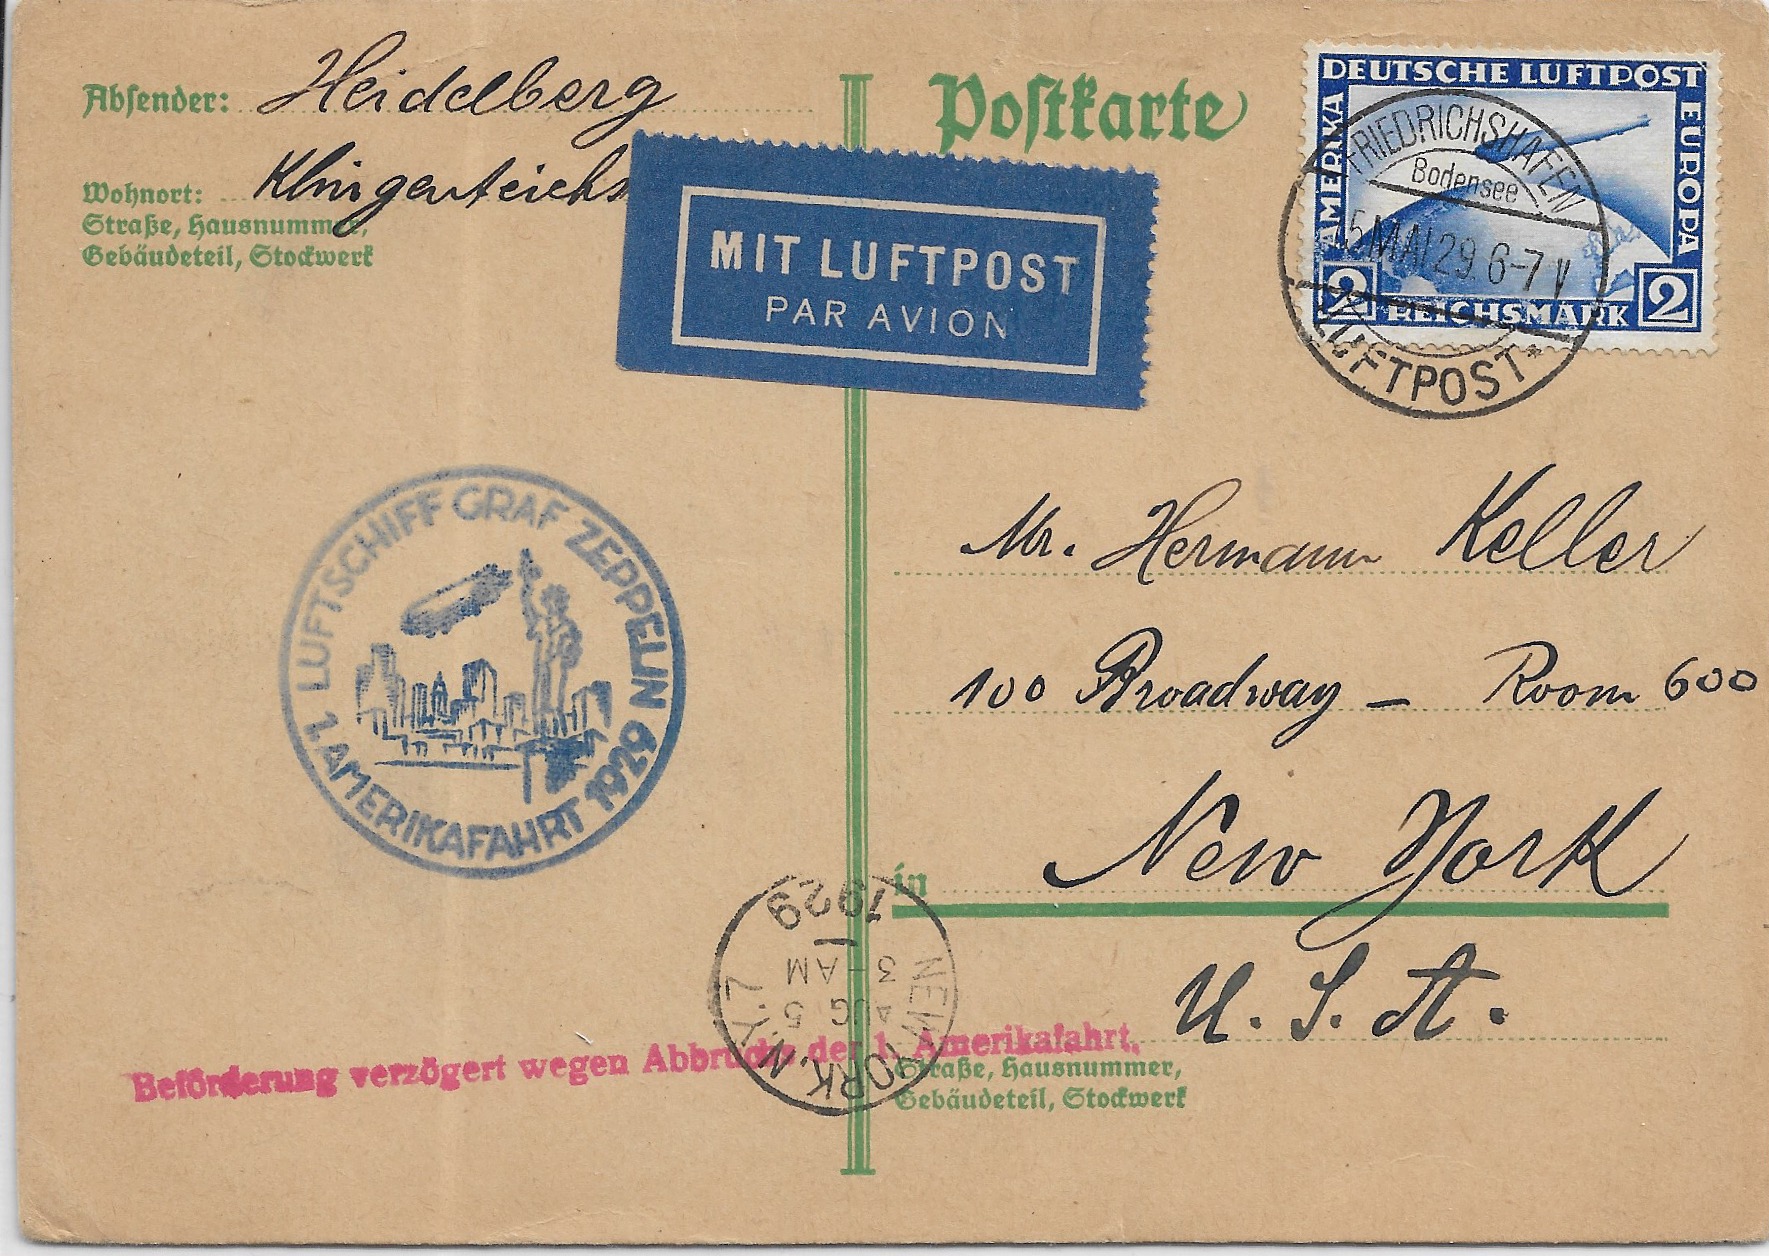 Absender: Heidelberg
Wohnort: Klingenteichs
Straße, Hausnummer,
Gebäudeteil, Stockwerk
Postkarte
MIT LUFTPOST
PAR AVION
DEUTSCHE LUFTPOST
AMERIKA
EUROPA
2 REICHSMARK 2
FRIEDRICHSHAFEN
Bodensee
15 MAI 29. 6-7 V
LUFTPOST *
LUFTSCHIFF GRAF ZEPPELIN
1. AMERIKAFAHRT 1929
Mr. Hermann Keller
100 Broadway – Room 600
in New York
U.S.A.
Straße, Hausnummer,
Gebäudeteil, Stockwerk
NEW YORK, N.Y. 7
AUG 5
3 – AM
1929
Beförderung verzögert wegen Abbruchs der 1. Amerikafahrt.